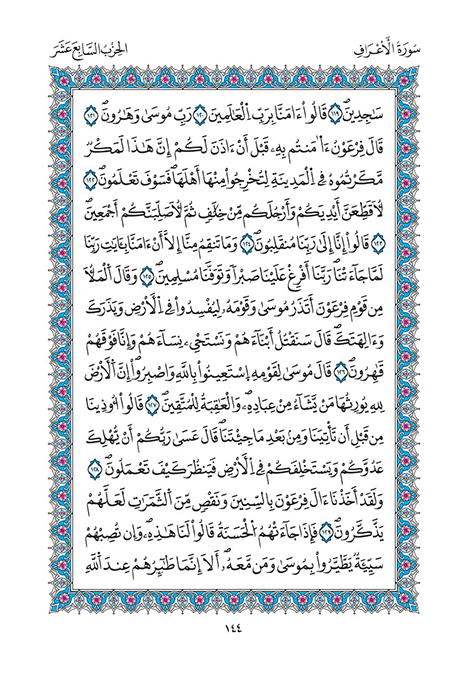 سُورَةُ الْأَعْرَافِ
الحِزْبُ السَّابِعَ عَشَرَ
سَٰجِدِينَ ١١٩ قَالُوٓاْ ءَامَنَّا بِرَبِّ الْعَٰلَمِينَ ١٢٠ رَبِّ مُوسَىٰ وَهَٰرُونَ ١٢١
قَالَ فِرْعَوْنُ ءَاٰمَنتُم بِهِۦ قَبْلَ أَنْ ءَاذَنَ لَكُمْ إِنَّ هَٰذَا لَمَكْرٌ
مَّكَرْتُمُوهُ فِے الْمَدِينَةِ لِتُخْرِجُواْ مِنْهَآ أَهْلَهَا فَسَوْفَ تَعْلَمُونَ ١٢٢
لَأُقَطِّعَنَّ أَيْدِيَكُمْ وَأَرْجُلَكُم مِّنْ خِلَٰفٍ ثُمَّ لَأُصَلِّبَنَّكُمْ أَجْمَعِينَ
١٢٣ قَالُوٓاْ إِنَّآ إِلَىٰ رَبِّنَا مُنقَلِبُونَ ١٢٤ وَمَا تَنقِمُ مِنَّآ إِلَّآ أَنْ ءَامَنَّا بِـَٔايَٰتِ رَبِّنَا
لَمَّا جَآءَتْنَا رَبَّنَآ أَفْرِغْ عَلَيْنَا صَبْرًا وَتَوَفَّنَا مُسْلِمِينَ ١٢٥ وَقَالَ الْمَلَأُ
مِن قَوْمِ فِرْعَوْنَ أَتَذَرُ مُوسَىٰ وَقَوْمَهُۥ لِيُفْسِدُواْ فِے الْأَرْضِ وَيَذَرَكَ
وَءَالِهَتَكَ قَالَ سَنَقْتُلُ أَبْنَآءَهُمْ وَنَسْتَحْيِۦ نِسَآءَهُمْ وَإِنَّا فَوْقَهُمْ
قَٰهِرُونَ ١٢٦ قَالَ مُوسَىٰ لِقَوْمِهِ اِسْتَعِينُواْ بِاللَّهِ وَاصْبِرُوٓاْ إِنَّ الْأَرْضَ
لِلهِ يُورِثُهَا مَن يَّشَآءُ مِنْ عِبَادِهِۦ وَالْعَٰقِبَةُ لِلْمُتَّقِينَ ١٢٧ قَالُوٓاْ أُوذِينَا
مِن قَبْلِ أَن تَأْتِيَنَا وَمِنۢ بَعْدِ مَا جِئْتَنَا قَالَ عَسَىٰ رَبُّكُمْ أَنْ يُّهْلِكَ
عَدُوَّكُمْ وَيَسْتَخْلِفَكُمْ فِے الْأَرْضِ فَيَنظُرَ كَيْفَ تَعْمَلُونَ ١٢٨
وَلَقَدْ أَخَذْنَآ ءَالَ فِرْعَوْنَ بِالسِّنِينَ وَنَقْصٍ مِّنَ الثَّمَرَٰتِ لَعَلَّهُمْ
يَذَّكَّرُونَ ١٢٩ فَإِذَا جَآءَتْهُمُ الْحَسَنَةُ قَالُواْ لَنَا هَٰذِهِۦ وَإِن تُصِبْهُمْ
سَيِّئَةٌ يَطَّيَّرُواْ بِمُوسَىٰ وَمَن مَّعَهُۥٓ أَلَآ إِنَّمَا طَٰٓئِرُهُمْ عِندَ اللَّهِ
١٤٤